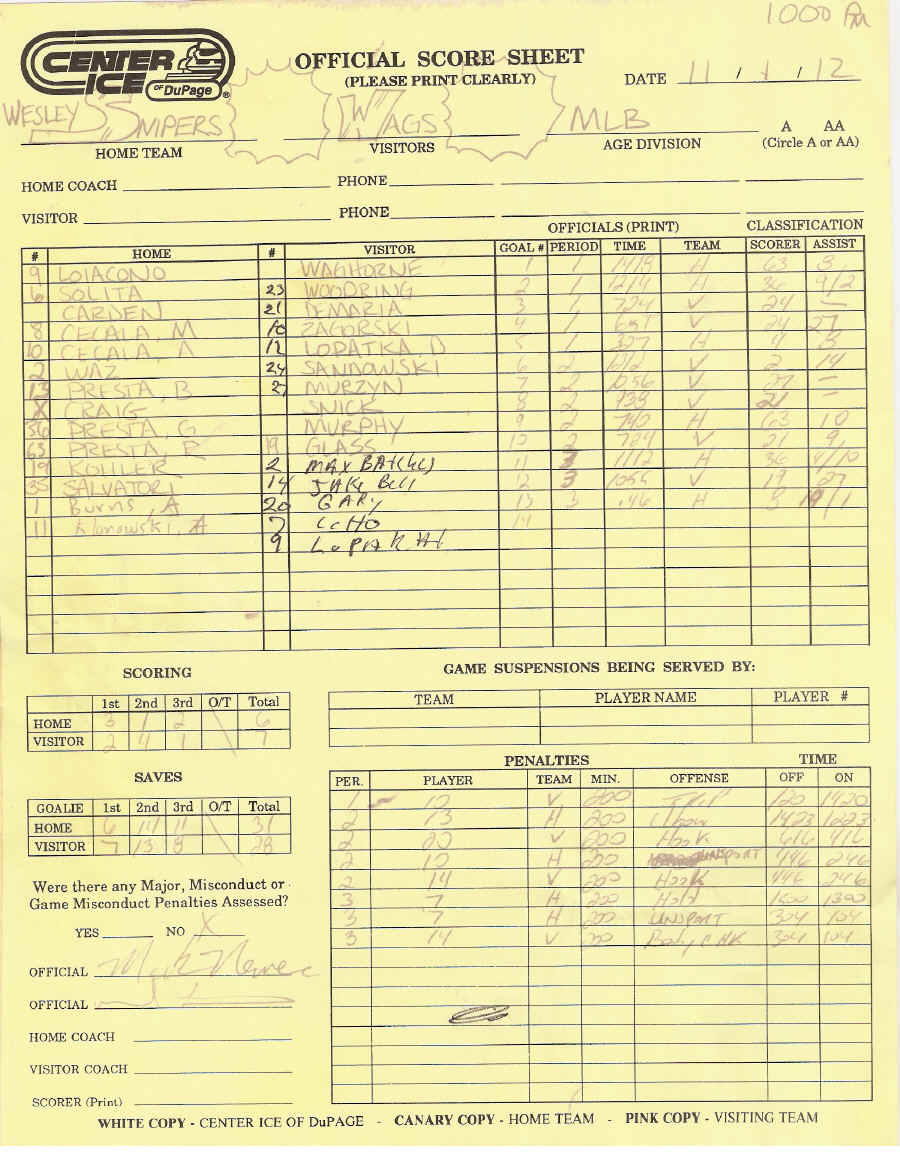 1000 PM
CENTER ICE OF DuPage ®
OFFICIAL SCORE SHEET
(PLEASE PRINT CLEARLY)
DATE 11 / 1 / 12
WESLEY SNIPERS WAGS MLB A AA
HOME TEAM VISITORS AGE DIVISION (Circle A or AA)
HOME COACH PHONE
VISITOR PHONE
OFFICIALS (PRINT) CLASSIFICATION
# HOME # VISITOR GOAL # PERIOD TIME TEAM SCORER ASSIST
9 LOIACONO WAGHORNE 1 1 1419 H 63 8
6 SOLITA 23 WOODRING 2 1 1214 H 36 9/2
CARDEN 21 DEMARIA 3 1 724 V 24 —
8 CECALA, M 10 ZAGORSKI 4 1 651 V 24 27
10 CECALA, A 12 LOPATKA, D 5 1 327 H 8
2 WAZ 24 SANDOWSKI 6 2 V 2 14
13 PRESTA, B 2 MURZYN 7 2 1056 V —
X CRAIG SNICK 8 2 938 V 21 —
36 PRESTA, G MURPHY 9 2 740 H 63 10
63 PRESTA, R 19 GLASS 10 2 724 V 21 9
19 KOHLER 2 MAX 11 3 1112 H 36 4/10
35 SALVATORI 14 JAKE BELL 12 3 1055 V 19 27
1 Burns, A 20 GARY 13 3 .46 H 8 19/1
11 7 14
9
SCORING
1st 2nd 3rd O/T Total
HOME 3 1 2 6
VISITOR 2 4 1 7
SAVES
GOALIE 1st 2nd 3rd O/T Total
HOME 6 14 11 31
VISITOR 7 13 8 28
Were there any Major, Misconduct or
Game Misconduct Penalties Assessed?
YES NO X
OFFICIAL
OFFICIAL
HOME COACH
VISITOR COACH
SCORER (Print)
GAME SUSPENSIONS BEING SERVED BY:
TEAM PLAYER NAME PLAYER #
PENALTIES TIME
PER. PLAYER TEAM MIN. OFFENSE OFF ON
1 12 V 200 TRIP 120 1420
2 13 H 200 Elbow 1423 1223
2 20 V 200 Hook 616 416
2 10 H 200 UNSPORT 446 246
2 14 V 200 Hook 446 246
3 7 H 200 Hold 1500 1300
3 7 H 200 UNSPORT 304 104
3 14 V 200 Body CHK 304 104
WHITE COPY - CENTER ICE OF DuPAGE - CANARY COPY - HOME TEAM - PINK COPY - VISITING TEAM